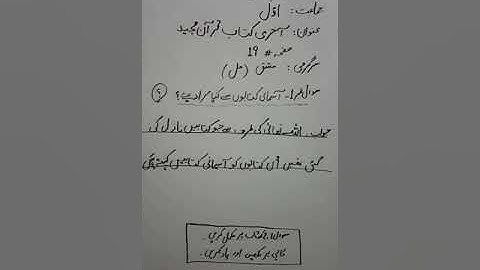 جماعت: اوّل
عنوان: آخری کتاب قرآن مجید
صفحہ # 19
سرگرمی: مشق (حل)
سوال نمبر 1۔ آسمانی کتابوں سے کیا مراد ہے؟
جواب۔ اللہ تعالیٰ کی طرف سے جو کتابیں نازل کی
گئی ہیں اُن کتابوں کو آسمانی کتابیں کہتے ہیں
سوال کتاب پر مکمل کریں۔
کاپی پر لکھیں اور یاد کریں۔